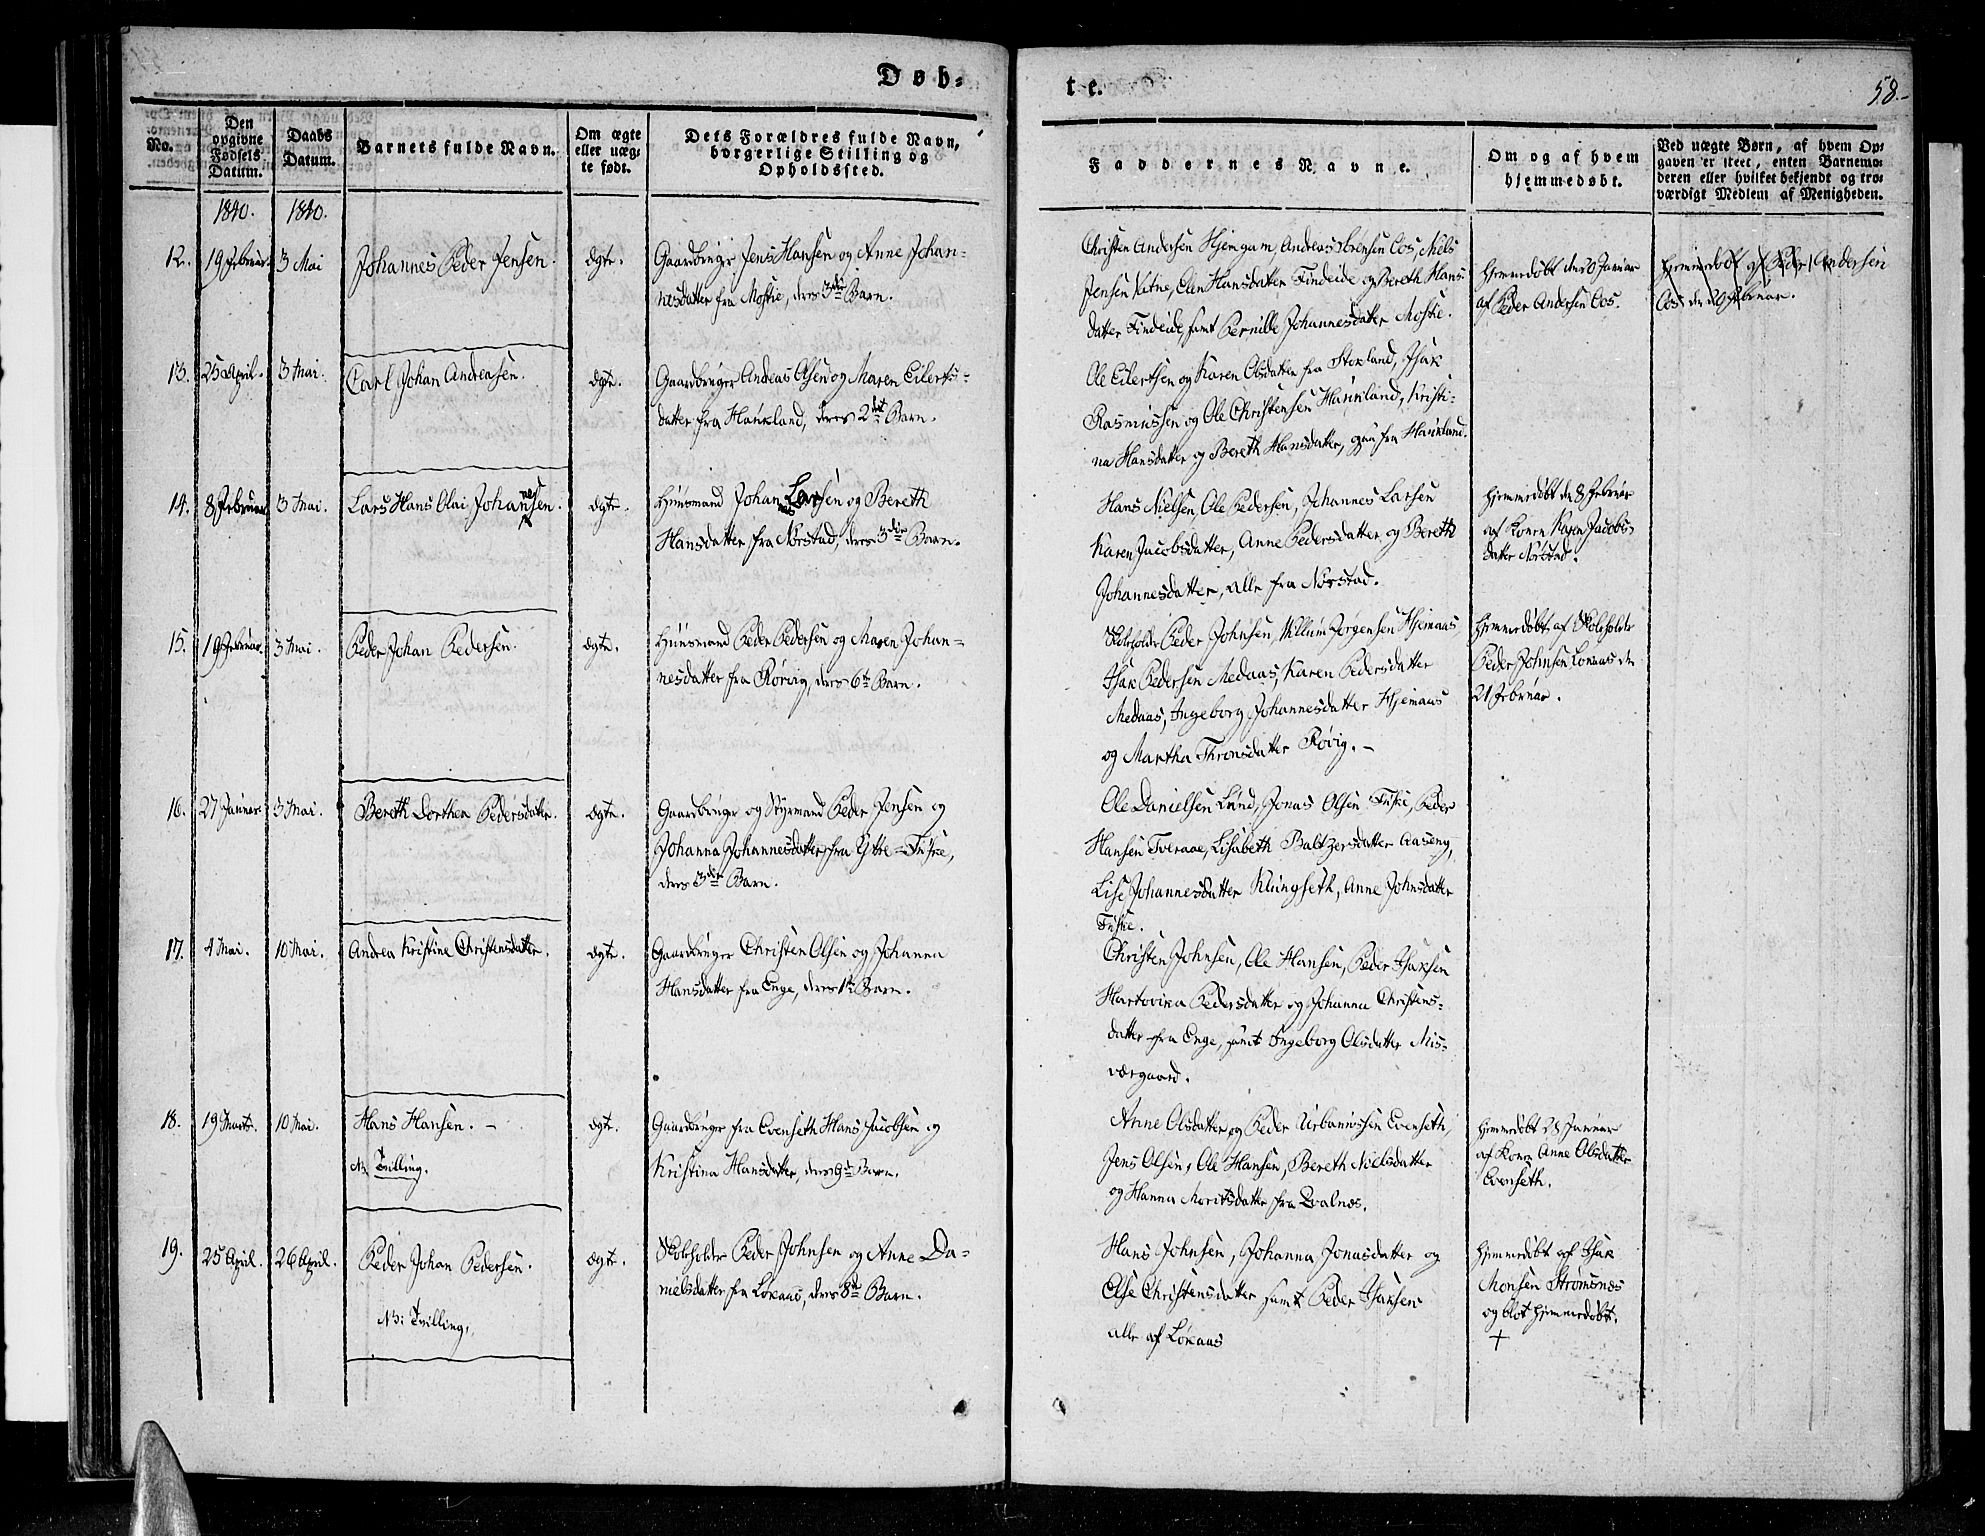 Døb-
te.
58.-
No.
Den
opgivne
Fødsels
Datum.
Daabs
Datum.
Barnets fulde Navn.
Om ægte
eller uæg-
te født.
Dets Forældres fulde Navn,
borgerlige Stilling og
Opholdssted.
Faddernes Navne.
Om og af hvem
hjemmedøbt.
Ved uægte Børn, af hvem Op-
gaven er skeet, enten Barnemo-
deren eller hvilket bekjendt og tro-
værdigt Medlem af Menigheden.
1840.
1840.
12.
19 Februar
3 Mai
Johannes Peder Jensen.
ægte.
Gaardbruger Jens Hansen og Anne Johan-
nesdatter fra Moskie, deres 3die Barn.
Christen Andersen Hjemgam, Andreas Sørensen Oos, Niels
Jensen Vatne, Elen Hansdatter Findeide og Bereth Hans-
datter Findeide, samt Pernille Johannesdatter Moskie.
Hjemmedøbt den 20 Januar
af Peder Andersen Oos.
Hjemmedøbt af Peder Andersen
Oos den 20 Februar.
13.
25 April.
3 Mai.
Carl Johan Andreasen.
ægte.
Gaardbruger Andreas Olsen og Maren Eilerts-
datter fra Haukland, deres 2det Barn.
Ole Eilertsen og Karen Olsdatter fra Stokland, Isak
Rasmussen og Ole Christensen Haukland, Kristi-
na Hansdatter og Bereth Hansdatter, fra Haukland.
14.
8 Februar
3 Mai.
Lars Hans Olai Johannesen.
ægte.
Huusmand Johannes Larsen og Bereth
Hansdatter fra Nørstad, deres 3die Barn.
Hans Nielsen, Ole Pedersen, Johannes Larsen
Karen Jacobsdatter, Anne Pedersdatter og Bereth
Johannesdatter, alle fra Nørstad.
Hjemmedøbt den 8 Februar
af Konen Karen Jacobs-
datter Nørstad.
15.
19 Februar
3 Mai.
Peder Johan Pedersen.
ægte.
Huusmand Peder Pedersen og Maren Johan-
nesdatter fra Rørvig, deres 6te Barn.
Skoleholder Peder Johnsen, Willum Jørgensen Hjemaas
Isak Pedersen Medaas, Karen Pedersdatter
Medaas, Ingeborg Johannesdatter Hjemaas
og Martha Thronsdatter Røvig. -
Hjemmedøbt af Skoleholder
Peder Johnsen Lonaas den
21 Februar.
16.
27 Januar
3 Mai.
Bereth Dorthea Pedersdatter.
ægte.
Gaardbruger og Styrmand Peder Jensen og
Johanna Johannesdatter fra Yttre-Fuske,
deres 3die Barn.
Ole Danielsen Lund, Jonas Olsen Fuske, Peder
Hansen Tveraae, Lisabeth Baltzersdatter Aaseng,
Lise Johannesdatter Klungseth, Anne Johnsdatter
Fuske.
17.
4 Mai.
10 Mai.
Andrea Kristine Christensdatter.
ægte.
Gaardbruger Christen Olsen og Johanna
Hansdatter fra Enge, deres 1te Barn.
Christen Johnsen, Ole Hansen, Peder Isaksen
Hartovika Pedersdatter og Johanna Christens-
datter fra Enge, samt Ingeborg Olsdatter Mis-
værgaard.
18.
19 Marts.
10 Mai.
Hans Hansen. -
NB Tvilling.
ægt.
Gaardbruger fra Evenseth Hans Jacobsen og
Kristina Hansdatter, deres 9de Barn.
Anne Olsdatter og Peder Urbanussen Evenseth,
Jens Olsen, Ole Hansen, Bereth Nielsdatter
og Hanna Moritsdatter fra Qvalnes.
Hjemmedøbt 28 Januar
af Konen Anne Olsdatter
Evenseth.
19.
25 April.
26 April.
Peder Johan Pedersen.
NB: Tvilling.
ægt.
Skoleholder Peder Johnsen og Anne Da-
nielsdatter fra Lonaas, deres 8de Barn.
Hans Johnsen, Johanna Jonasdatter og
Else Christensdatter samt Peder Isaksen
alle af Lonaas
Hjemmedøbt af Isak
Monsen Strømsnæs
og blot hjemmedøbt.
+